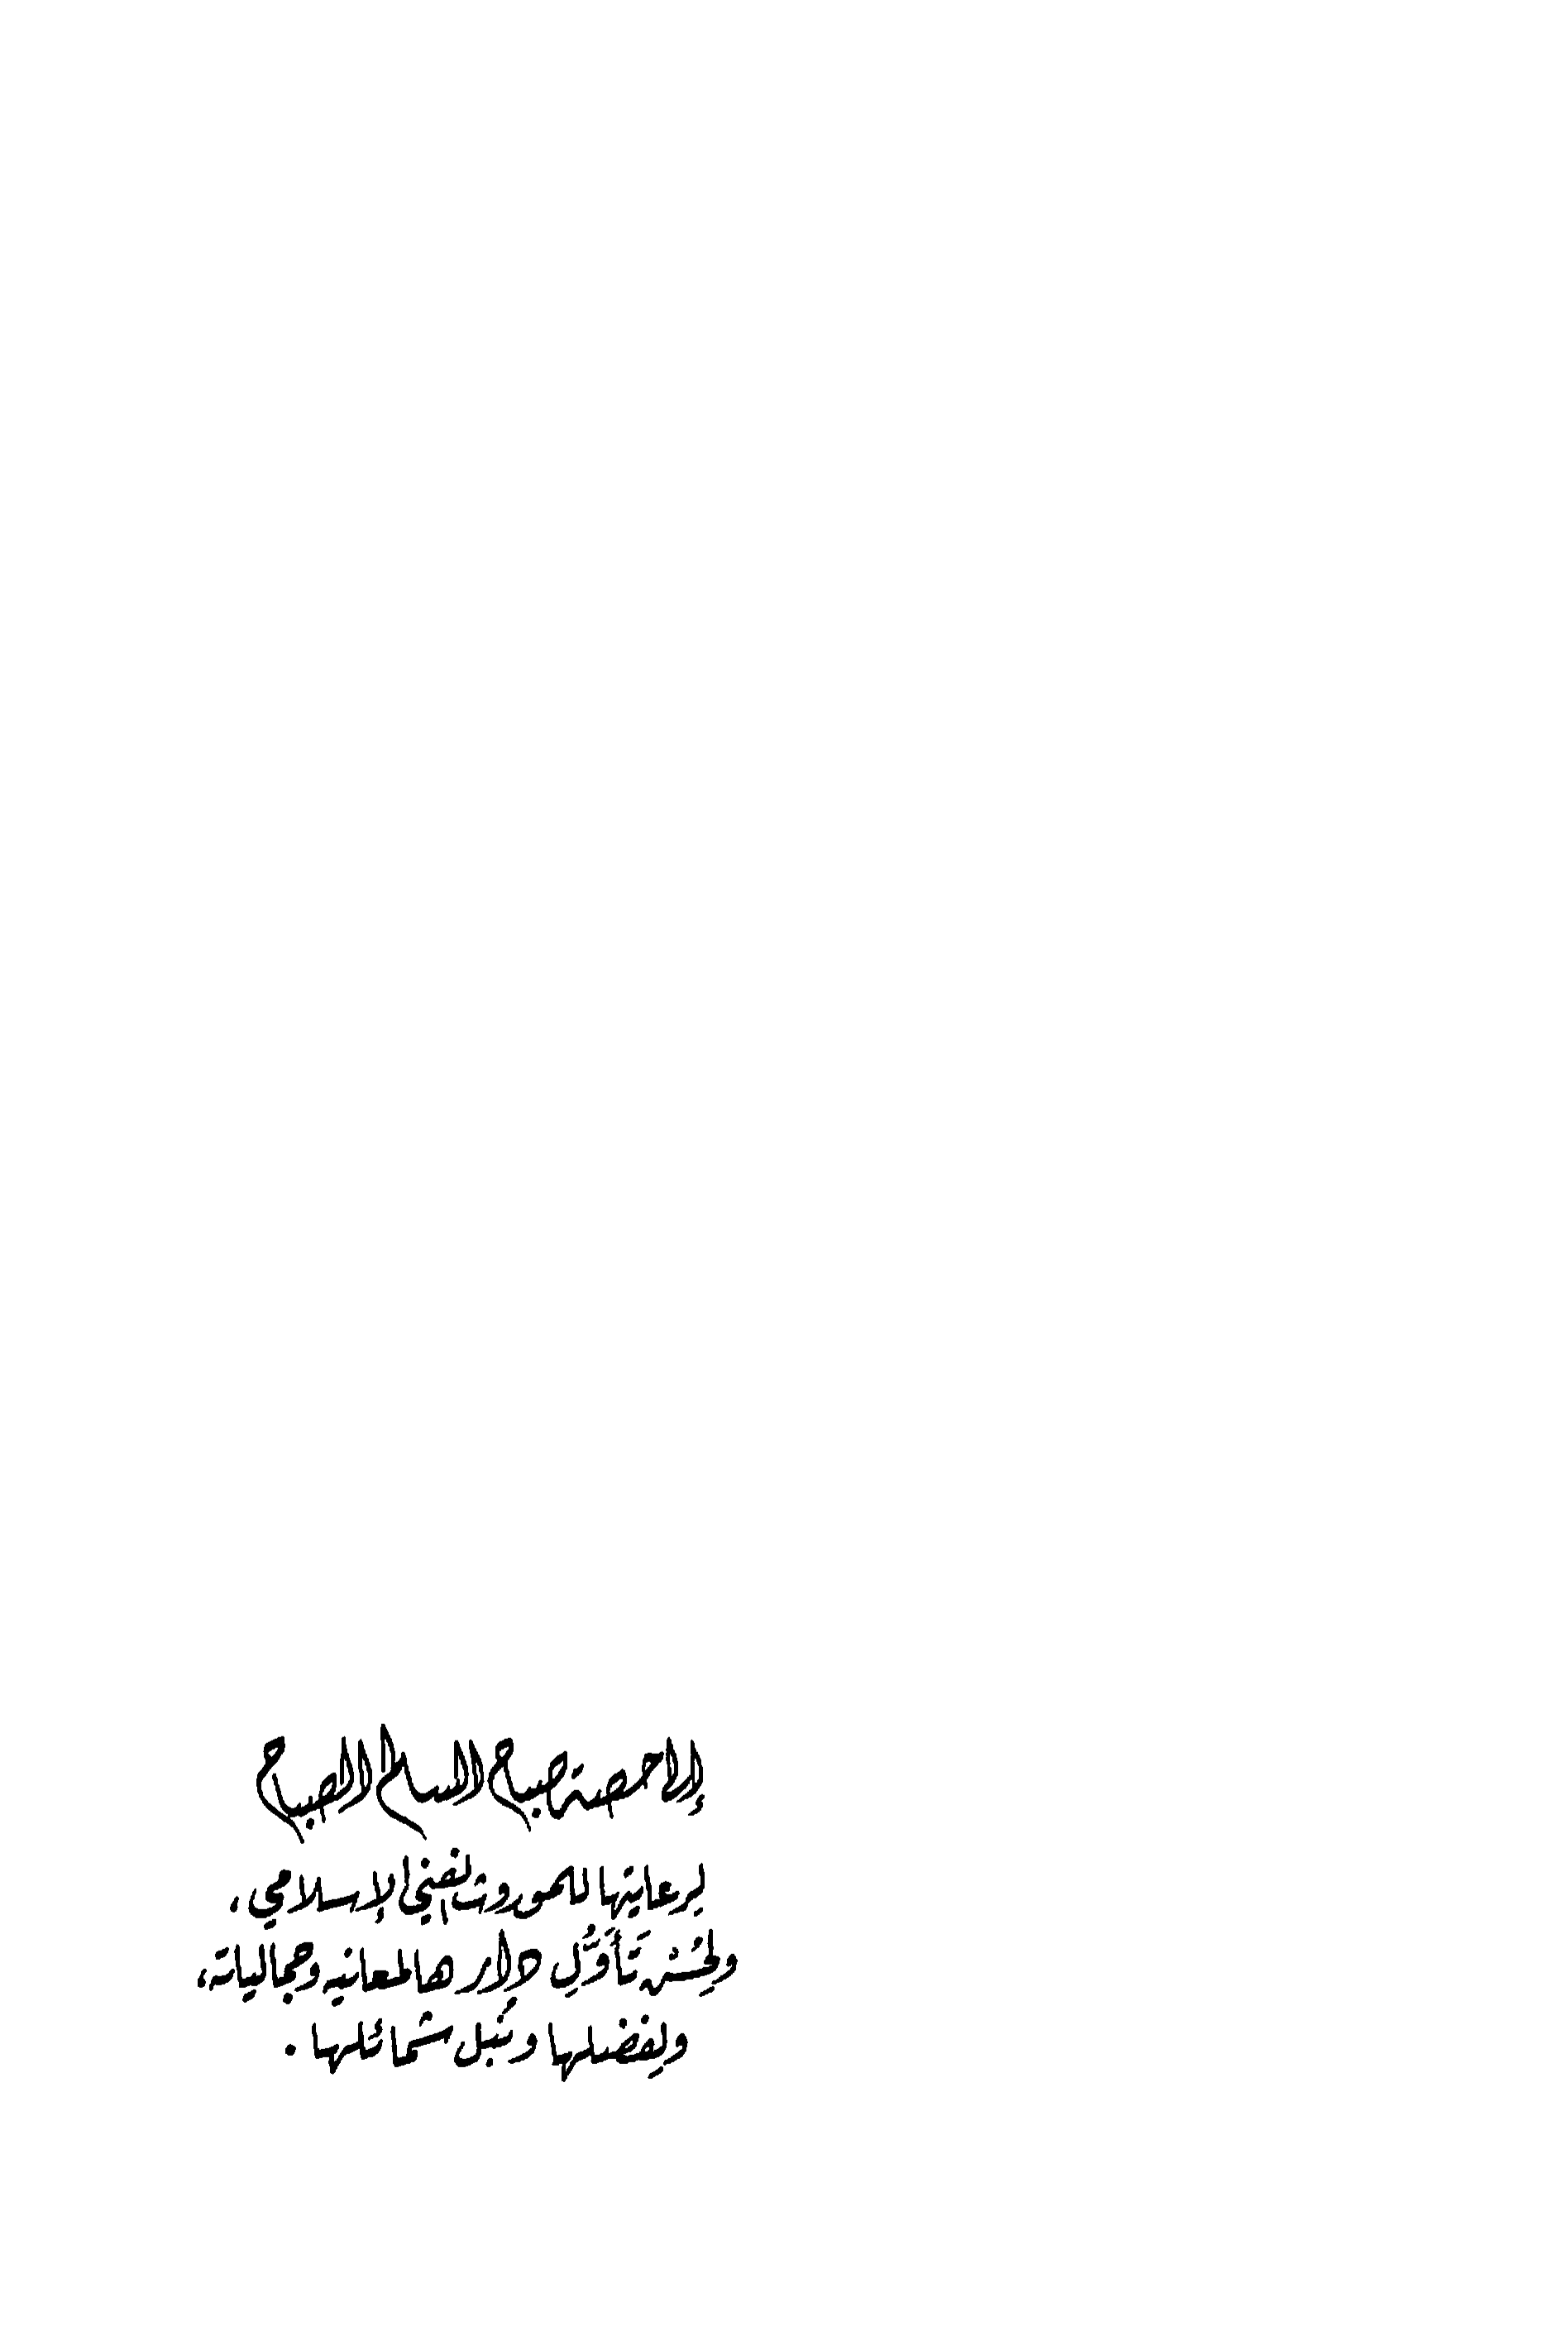 إلى حصة صباح السالم الصباح
لرعايتها للموروث الفني الإسلامي،
ولحُسْن تَأَوُّلِ دارها لمعانيه وجمالياته،
ولفضلها ونُبل شمائلها.